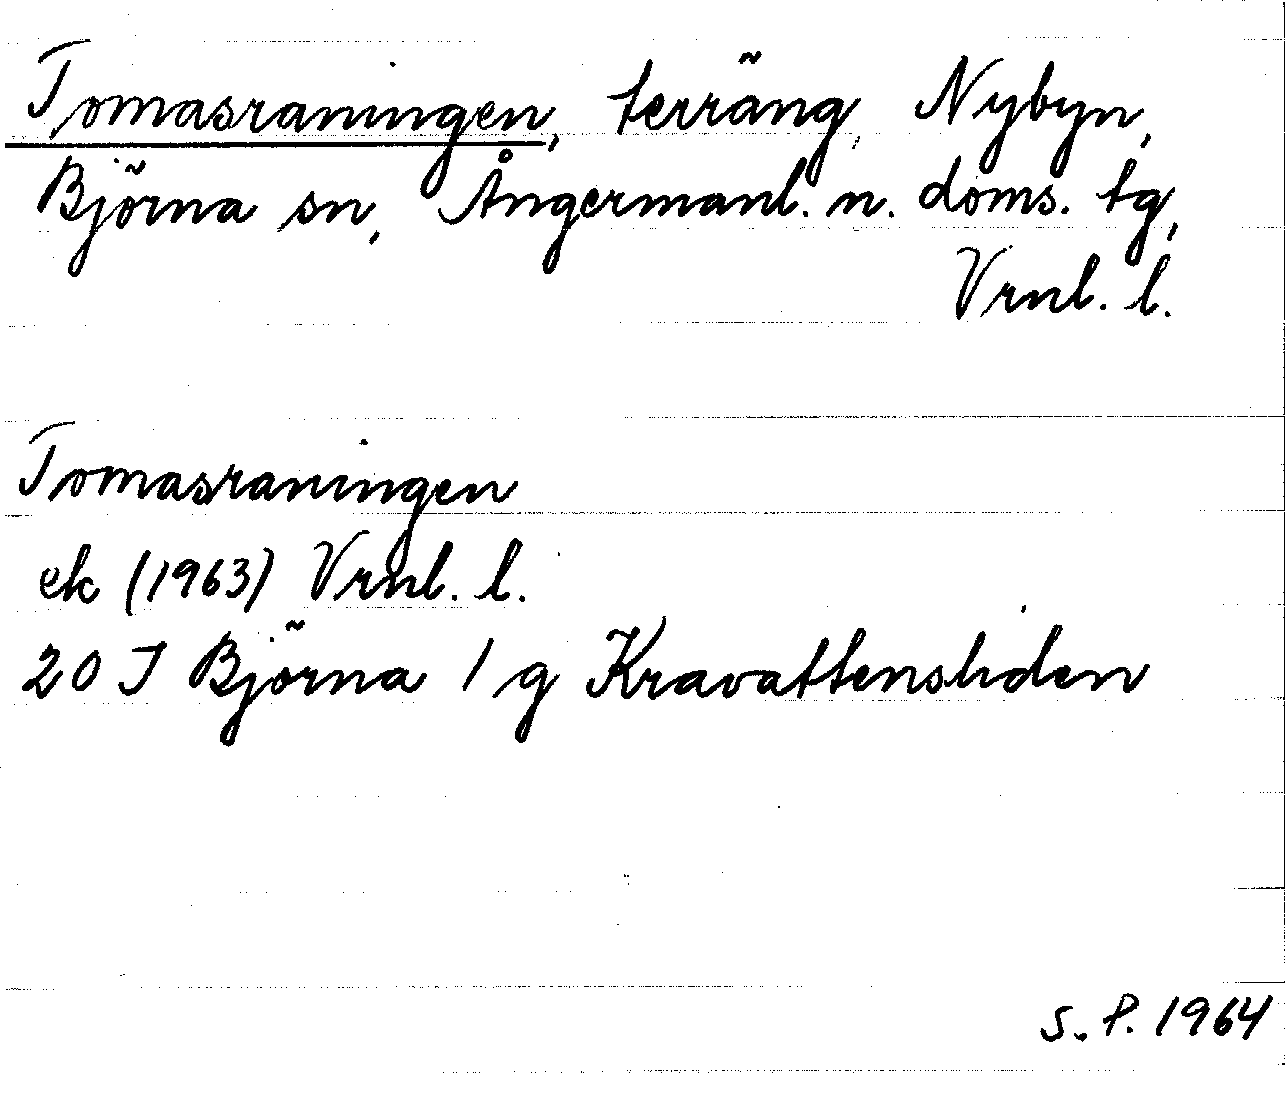 Tomasraningen, terräng, Nybyn,
Björna sn, Ångermanl. n. doms. tg,
Vrnl. l.
Tomasraningen
ek (1963) Vrnl. l.
20 J Björna 1 g Kravattensliden
S. P. 1964